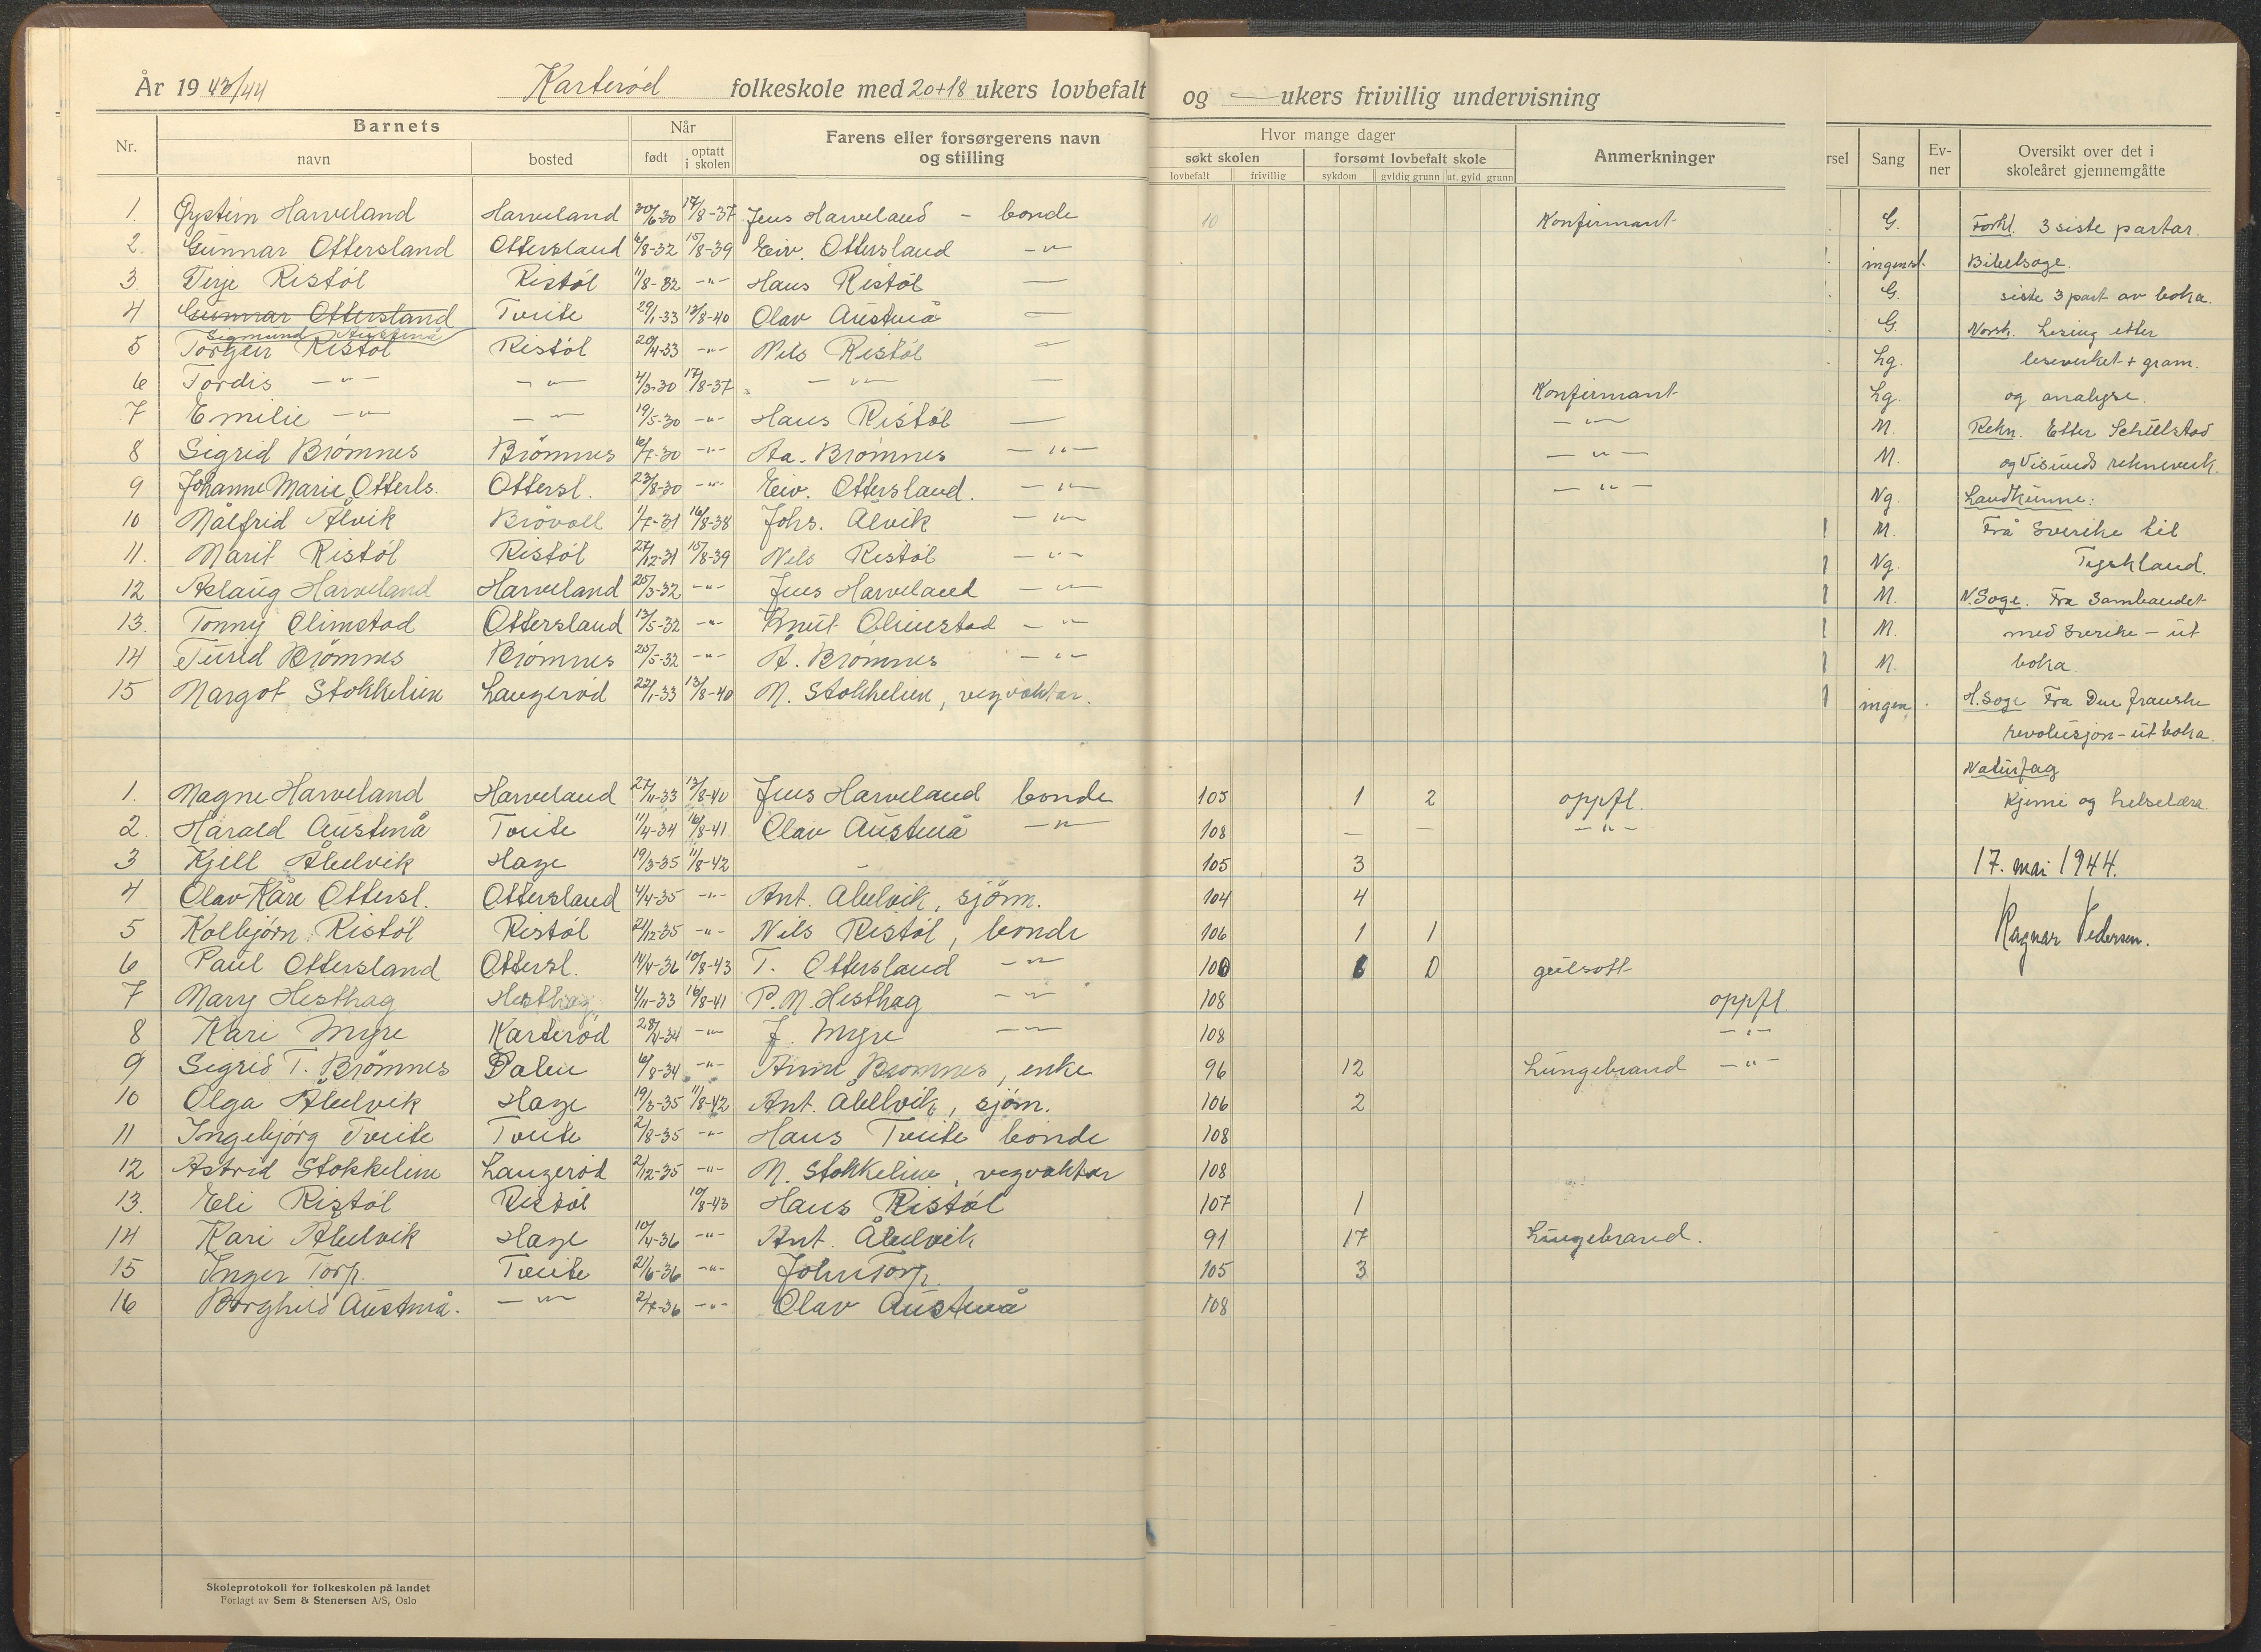 År 19 43/44 Karterød folkeskole med 20+18 ukers lovbefalt og — ukers frivillig undervisning
Nr. Barnets Når Farens eller forsørgerens navn og stilling Hvor mange dager Anmerkninger rsel Sang Ev-ner Oversikt over det i skoleåret gjennemgåtte
navn bosted født optatt i skolen søkt skolen forsømt lovbefalt skole
lovbefalt frivillig sykdom gyldig grunn ut. gyld. grunn
1. Øystein Harveland Harveland 30/6-30 17/8-37 Jens Harveland - bonde 10 Konfirmant G.
2. Gunnar Ottersland Ottersland 6/8-32 15/8-39 Eiv. Ottersland -"- ingen
3. Terje Ristøl Ristøl 11/8-32 -"- Hans Ristøl — G.
4 Gunnar Ottersland Tveite 29/1-33 13/8-40 Olav Austenå — G
Sigmund Austenå
5 Torgeir Ristøl Ristøl 20/4-33 -"- Nils Ristøl — Lg.
6 Tordis -"- -"- 4/3-30 17/8-37 -"- — Konfirmant Lg.
7 Emilie -"- -"- 19/5-30 -"- Hans Ristøl — -"- M.
8 Sigrid Brömnes Brömnes 6/7-30 -"- Aa. Brömnes -"- -"- M.
9 Johanne Marie Otterls. Ottersl. 23/8-30 -"- Eiv. Ottersland. -"- -"- Ng.
10 Målfrid Ålvik Brövoll 1/7-31 16/8-38 Johs. Ålvik -"- M.
11. Marit Ristøl Ristøl 27/12-31 15/8-39 Nils Ristøl -"- Ng.
12 Aslaug Harveland Harveland 25/3-32 -"- Jens Harveland -"- M.
13. Tonny Olimstad Ottersland 13/5-32 -"- Knut Olimstad -"- M.
14 Turid Brömnes Brömnes 25/5-32 -"- A. Brömnes -"- M.
15 Margot Stokkelien Laugerød 22/1-33 13/8-40 N. Stokkelien, vegvaktar. ingen
1. Magne Harveland Harveland 27/11-33 13/8-40 Jens Harveland bonde 105 1 2 oppfl.
2. Harald Austenå Tveite 11/4-34 16/8-41 Olav Austenå -"- 108 — — -"-
3 Kjell Åbelvik Hage 19/3-35 11/8-42 - 105 3
4 Olav Kåre Ottersl. Ottersland 4/4-35 -"- Ant. Åbelvik, sjöm. 104 4
5 Kolbjörn Ristøl Ristøl 21/12-35 -"- Nils Ristøl, bonde 106 1 1
6 Paul Ottersland Ottersl. 14/4-36 10/8-43 T. Ottersland -"- 100 gulsott
7 Mary Hesthag Hesthag 4/11-33 16/8-41 P. M. Hesthag -"- 108 oppfl.
8 Kari Myre Karterød 28/4-34 -"- J. Myre -"- 108 -"-
9 Sigrid T. Brömnes Dalen 6/8-34 -"- Brömnes, enke 96 12 Lungebrand -"-
10 Olga Åbelvik Hage 19/3-35 11/8-42 Ant. Åbelvik, sjöm. 106 2
11 Ingebjørg Tveite Tveite 2/8-35 -"- Hans Tveite bonde 108
12 Astrid Stokkelien Laugerød 2/12-35 -"- N. Stokkelien, vegvaktar 108
13. Eli Ristøl Ristøl 10/8-43 Hans Ristøl 107 1
14 Kari Åbelvik Hage 10/4-36 -"- Ant. Åbelvik 91 17 Lungebrand.
15 Inger Torp. Tveite 21/6-36 -"- John Torp. 105 3
16 Borghild Austenå. -"- 2/7-36 -"- Olav Austenå 108
Forkl. 3 siste partar.
Bibelsoge.
siste 3 part av boka.
Norsk. Lesing etter
leseverket + gram.
og analyse.
Rekn. Etter Schilstad
og Visunds rekneverk.
Landkunne:
Frå Sverike til
Tyskland.
N. Soge. Fra Sambandet
med Sverike - ut
boka.
H. Soge Fra Den franske
revolusjon - ut boka.
Naturfag
Kjemi og helselære.
17. mai 1944.
Ragnar Pedersen.
Skoleprotokoll for folkeskolen på landet
Forlagt av Sem & Stenersen A/S, Oslo